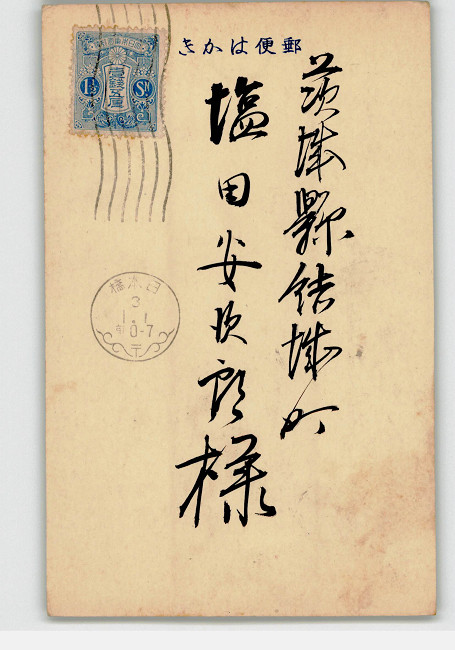 郵便はかき
茨城縣結城町
塩田安次郎様
1½ Sn
壹錢五厘
日本橋
3
1.1
前0-7
〒